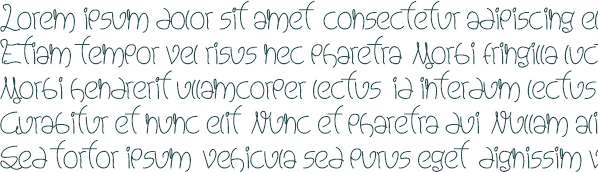 Lorem ipsum dolor sit amet consectetur adipiscing el
Etiam tempor vel risus nec pharetra Morbi fringilla luc
Morbi hendrerit ullamcorper lectus id interdum lectus
Curabitur et nunc elit Nunc et pharetra dui Nullam ali
Sed tortor ipsum vehicula sed purus eget dignissim v